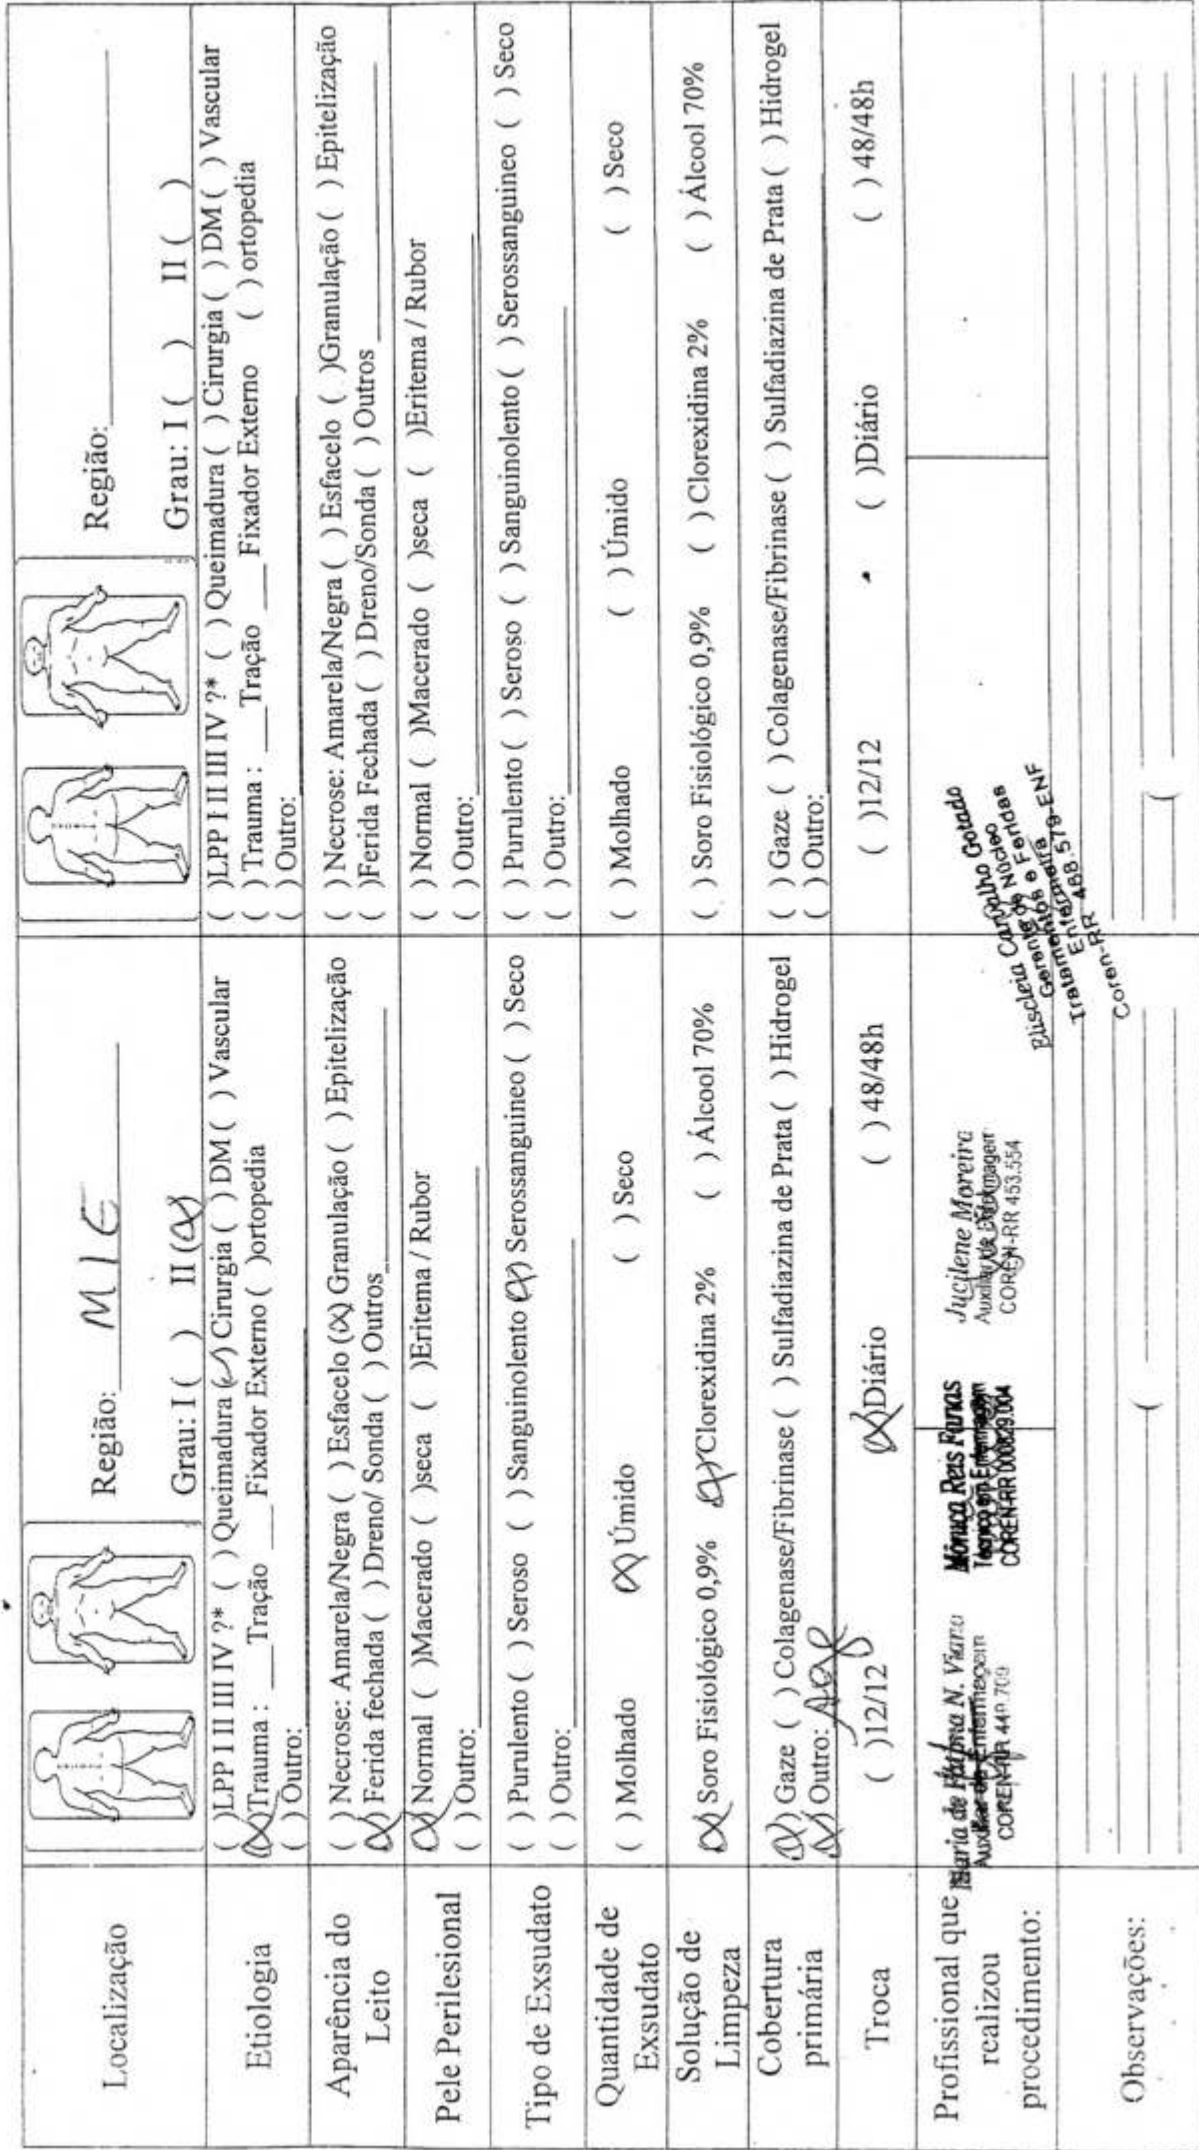 Localização
Região: M I E
Grau: I ( ) II (X)
Região:
Grau: I ( ) II ( )
Etiologia
( )LPP I II III IV ?* ( ) Queimadura (✓) Cirurgia ( ) DM ( ) Vascular
(X)Trauma : ___Tração ___Fixador Externo ( )ortopedia
( ) Outro:
( )LPP I II III IV ?* ( ) Queimadura ( ) Cirurgia ( ) DM ( ) Vascular
( ) Trauma : ___Tração ___ Fixador Externo ( ) ortopedia
( ) Outro:
Aparência do
Leito
( ) Necrose: Amarela/Negra ( ) Esfacelo (X) Granulação ( ) Epitelização
(X) Ferida fechada ( ) Dreno/ Sonda ( ) Outros
( ) Necrose: Amarela/Negra ( ) Esfacelo ( )Granulação ( ) Epitelização
( )Ferida Fechada ( ) Dreno/Sonda ( ) Outros
Pele Perilesional
(X) Normal ( )Macerado ( )seca ( )Eritema / Rubor
( ) Outro:
( ) Normal ( )Macerado ( )seca ( )Eritema / Rubor
( ) Outro:
Tipo de Exsudato
( ) Purulento ( ) Seroso ( ) Sanguinolento (X) Serossanguineo ( ) Seco
( ) Outro:
( ) Purulento ( ) Seroso ( ) Sanguinolento ( ) Serossanguineo ( ) Seco
( ) Outro:
Quantidade de
Exsudato
( ) Molhado (X) Úmido ( ) Seco
( ) Molhado ( ) Úmido ( ) Seco
Solução de
Limpeza
(X) Soro Fisiológico 0,9% (X) Clorexidina 2% ( ) Álcool 70%
( ) Soro Fisiológico 0,9% ( ) Clorexidina 2% ( ) Álcool 70%
Cobertura
primária
(X) Gaze ( ) Colagenase/Fibrinase ( ) Sulfadiazina de Prata ( ) Hidrogel
(X) Outro:
( ) Gaze ( ) Colagenase/Fibrinase ( ) Sulfadiazina de Prata ( ) Hidrogel
( ) Outro:
Troca
( )12/12 (X)Diário ( ) 48/48h
( )12/12 ( )Diário ( ) 48/48h
Profissional que
realizou
procedimento:
Maria de Fátima N. Viana
Auxiliar de Enfermagem
COREN-RR 440.709
Mônica Reis Farias
Técnico em Enfermagem
COREN-RR 000829.004
Jucilene Moreira
Auxiliar de Enfermagem
COREN-RR 453.554
Carvalho Gotado
Gerente do Núcleo
Tratamento de Feridas
Enfermeira
Coren-RR 468.579-ENF
Observações: